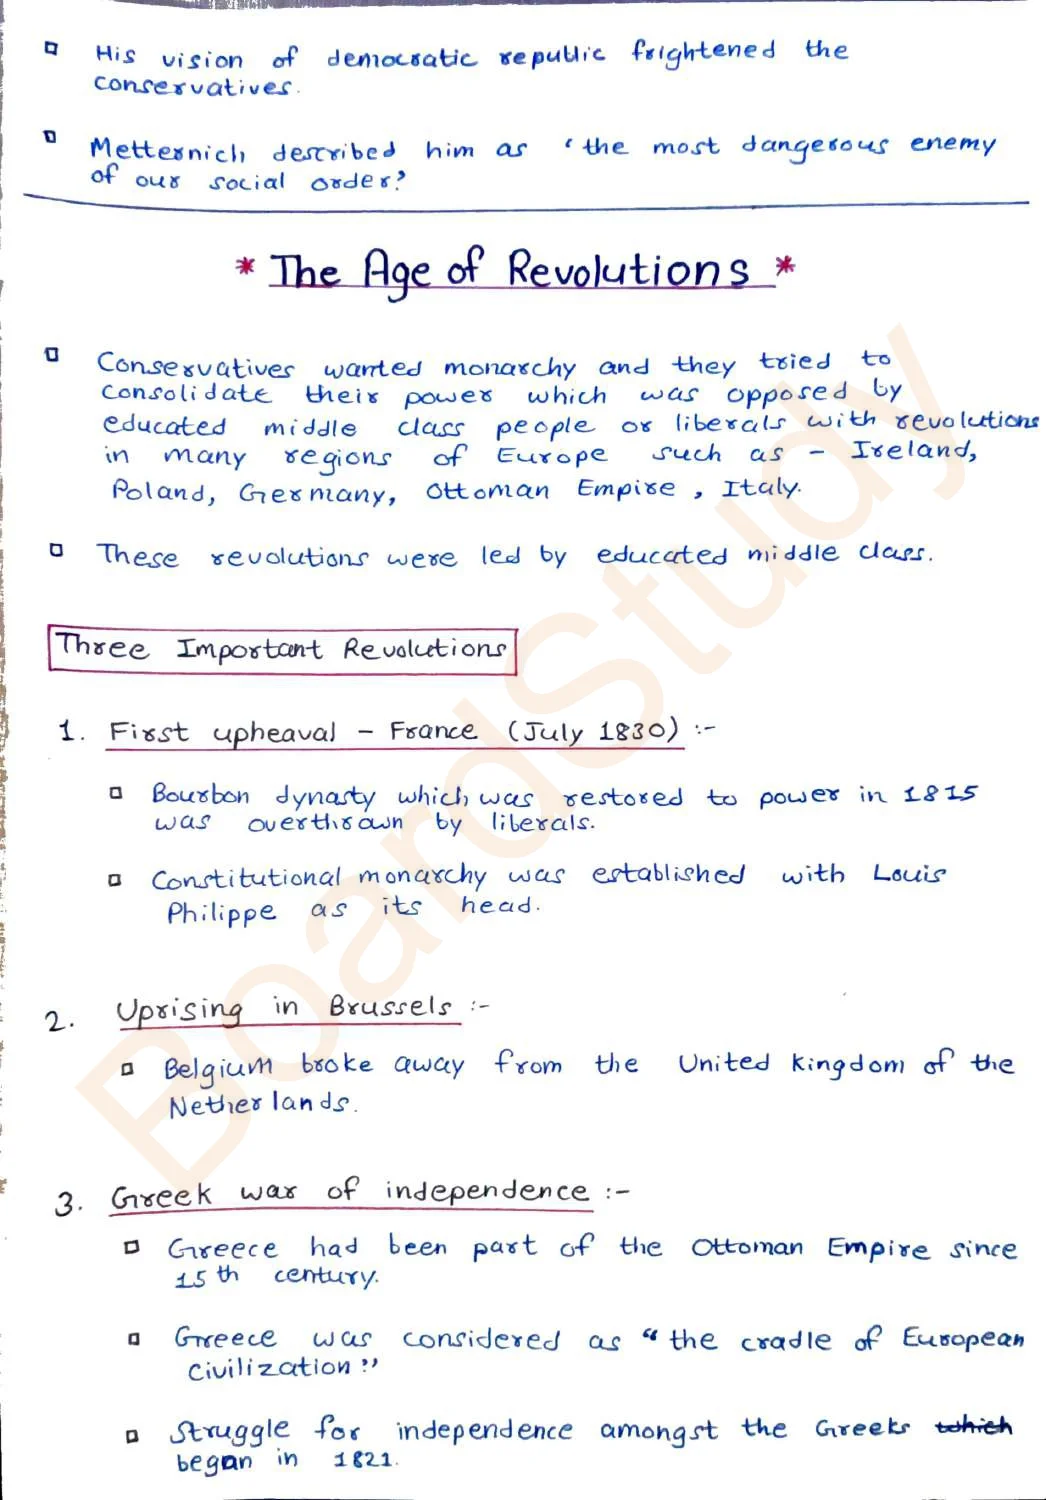 His vision of democratic republic frightened the
conservatives.
Metternich described him as 'the most dangerous enemy
of our social order.'
* The Age of Revolutions *
Conservatives wanted monarchy and they tried to
consolidate their power which was opposed by
educated middle class people or liberals with revolutions
in many regions of Europe such as - Ireland,
Poland, Germany, Ottoman Empire, Italy.
These revolutions were led by educated middle class.
Three Important Revolutions
1. First upheaval - France (July 1830) :-
Bourbon dynasty which was restored to power in 1815
was overthrown by liberals.
Constitutional monarchy was established with Louis
Philippe as its head.
2. Uprising in Brussels :-
Belgium broke away from the United kingdom of the
Netherlands.
3. Greek war of independence :-
Greece had been part of the Ottoman Empire since
15th century.
Greece was considered as "the cradle of European
civilization"
Struggle for independence amongst the Greeks which
began in 1821.
BoardStudy